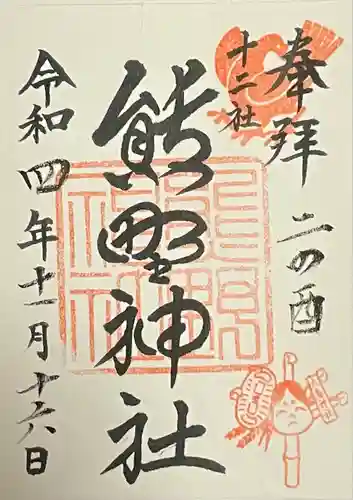 奉拝
二の酉
十二社
熊野神社
令和四年十一月十六日